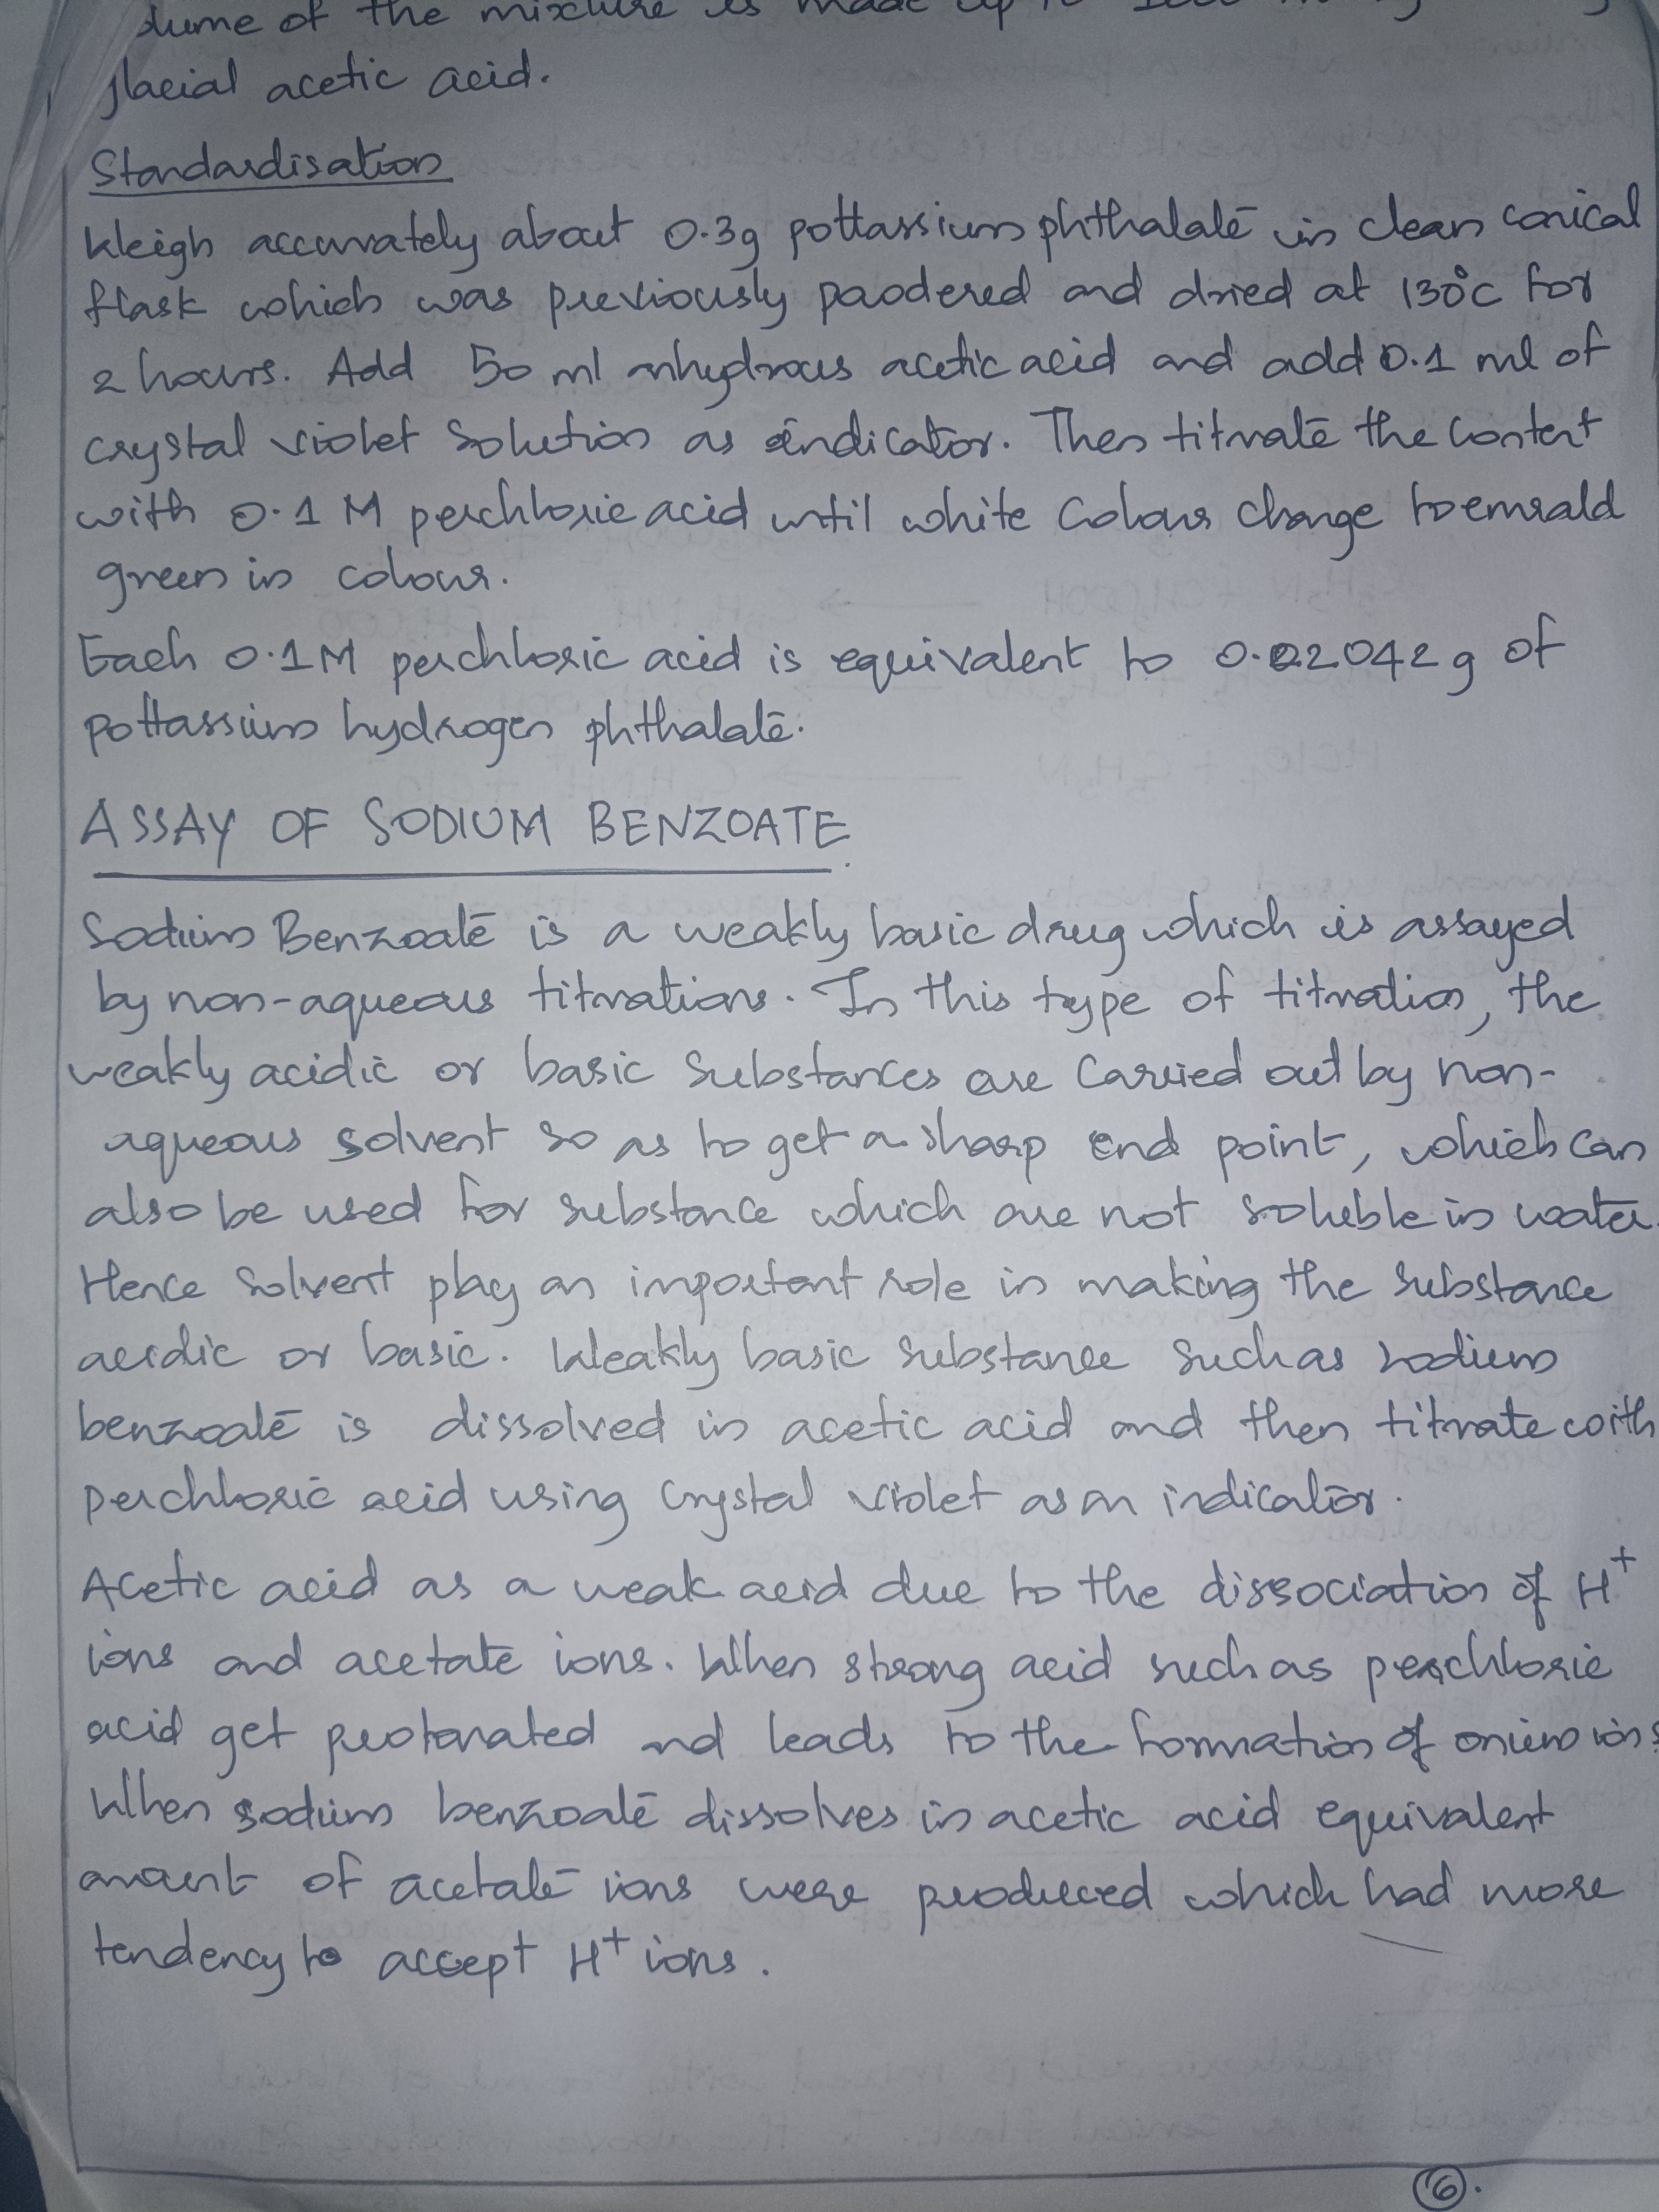 olume of the mixture is made up to
glacial acetic acid.
Standardisation
Weigh accurately about 0.3g pottassium phthalate in clean conical
flask which was previously paodered and dried at 130°C for
2 hours. Add 50 ml anhydrous acetic acid and add 0.1 ml of
crystal violet solution as indicator. Then titrate the content
with 0.1 M perchloric acid until white Colour change to emrald
green in colour.
Each 0.1M perchloric acid is equivalent to 0.02042 g of
pottassium hydrogen phthalate.
ASSAY OF SODIUM BENZOATE.
Sodium Benzoate is a weakly basic drug which is assayed
by non-aqueous titrations. In this type of titration, the
weakly acidic or basic substances are carried out by non-
aqueous solvent so as to get a sharp end point, which can
also be used for substance which are not soluble in water.
Hence solvent play an important role in making the substance
acidic or basic. Weakly basic substance such as sodium
benzoate is dissolved in acetic acid and then titrate with
perchloric acid using crystal violet as an indicator.
Acetic acid as a weak acid due to the dissociation of H⁺
ions and acetate ions. When strong acid such as perchloric
acid get protonated and leads to the formation of onium ions
When sodium benzoate dissolves in acetic acid equivalent
amount of acetate ions were produced which had more
tendency to accept H⁺ ions.
16.